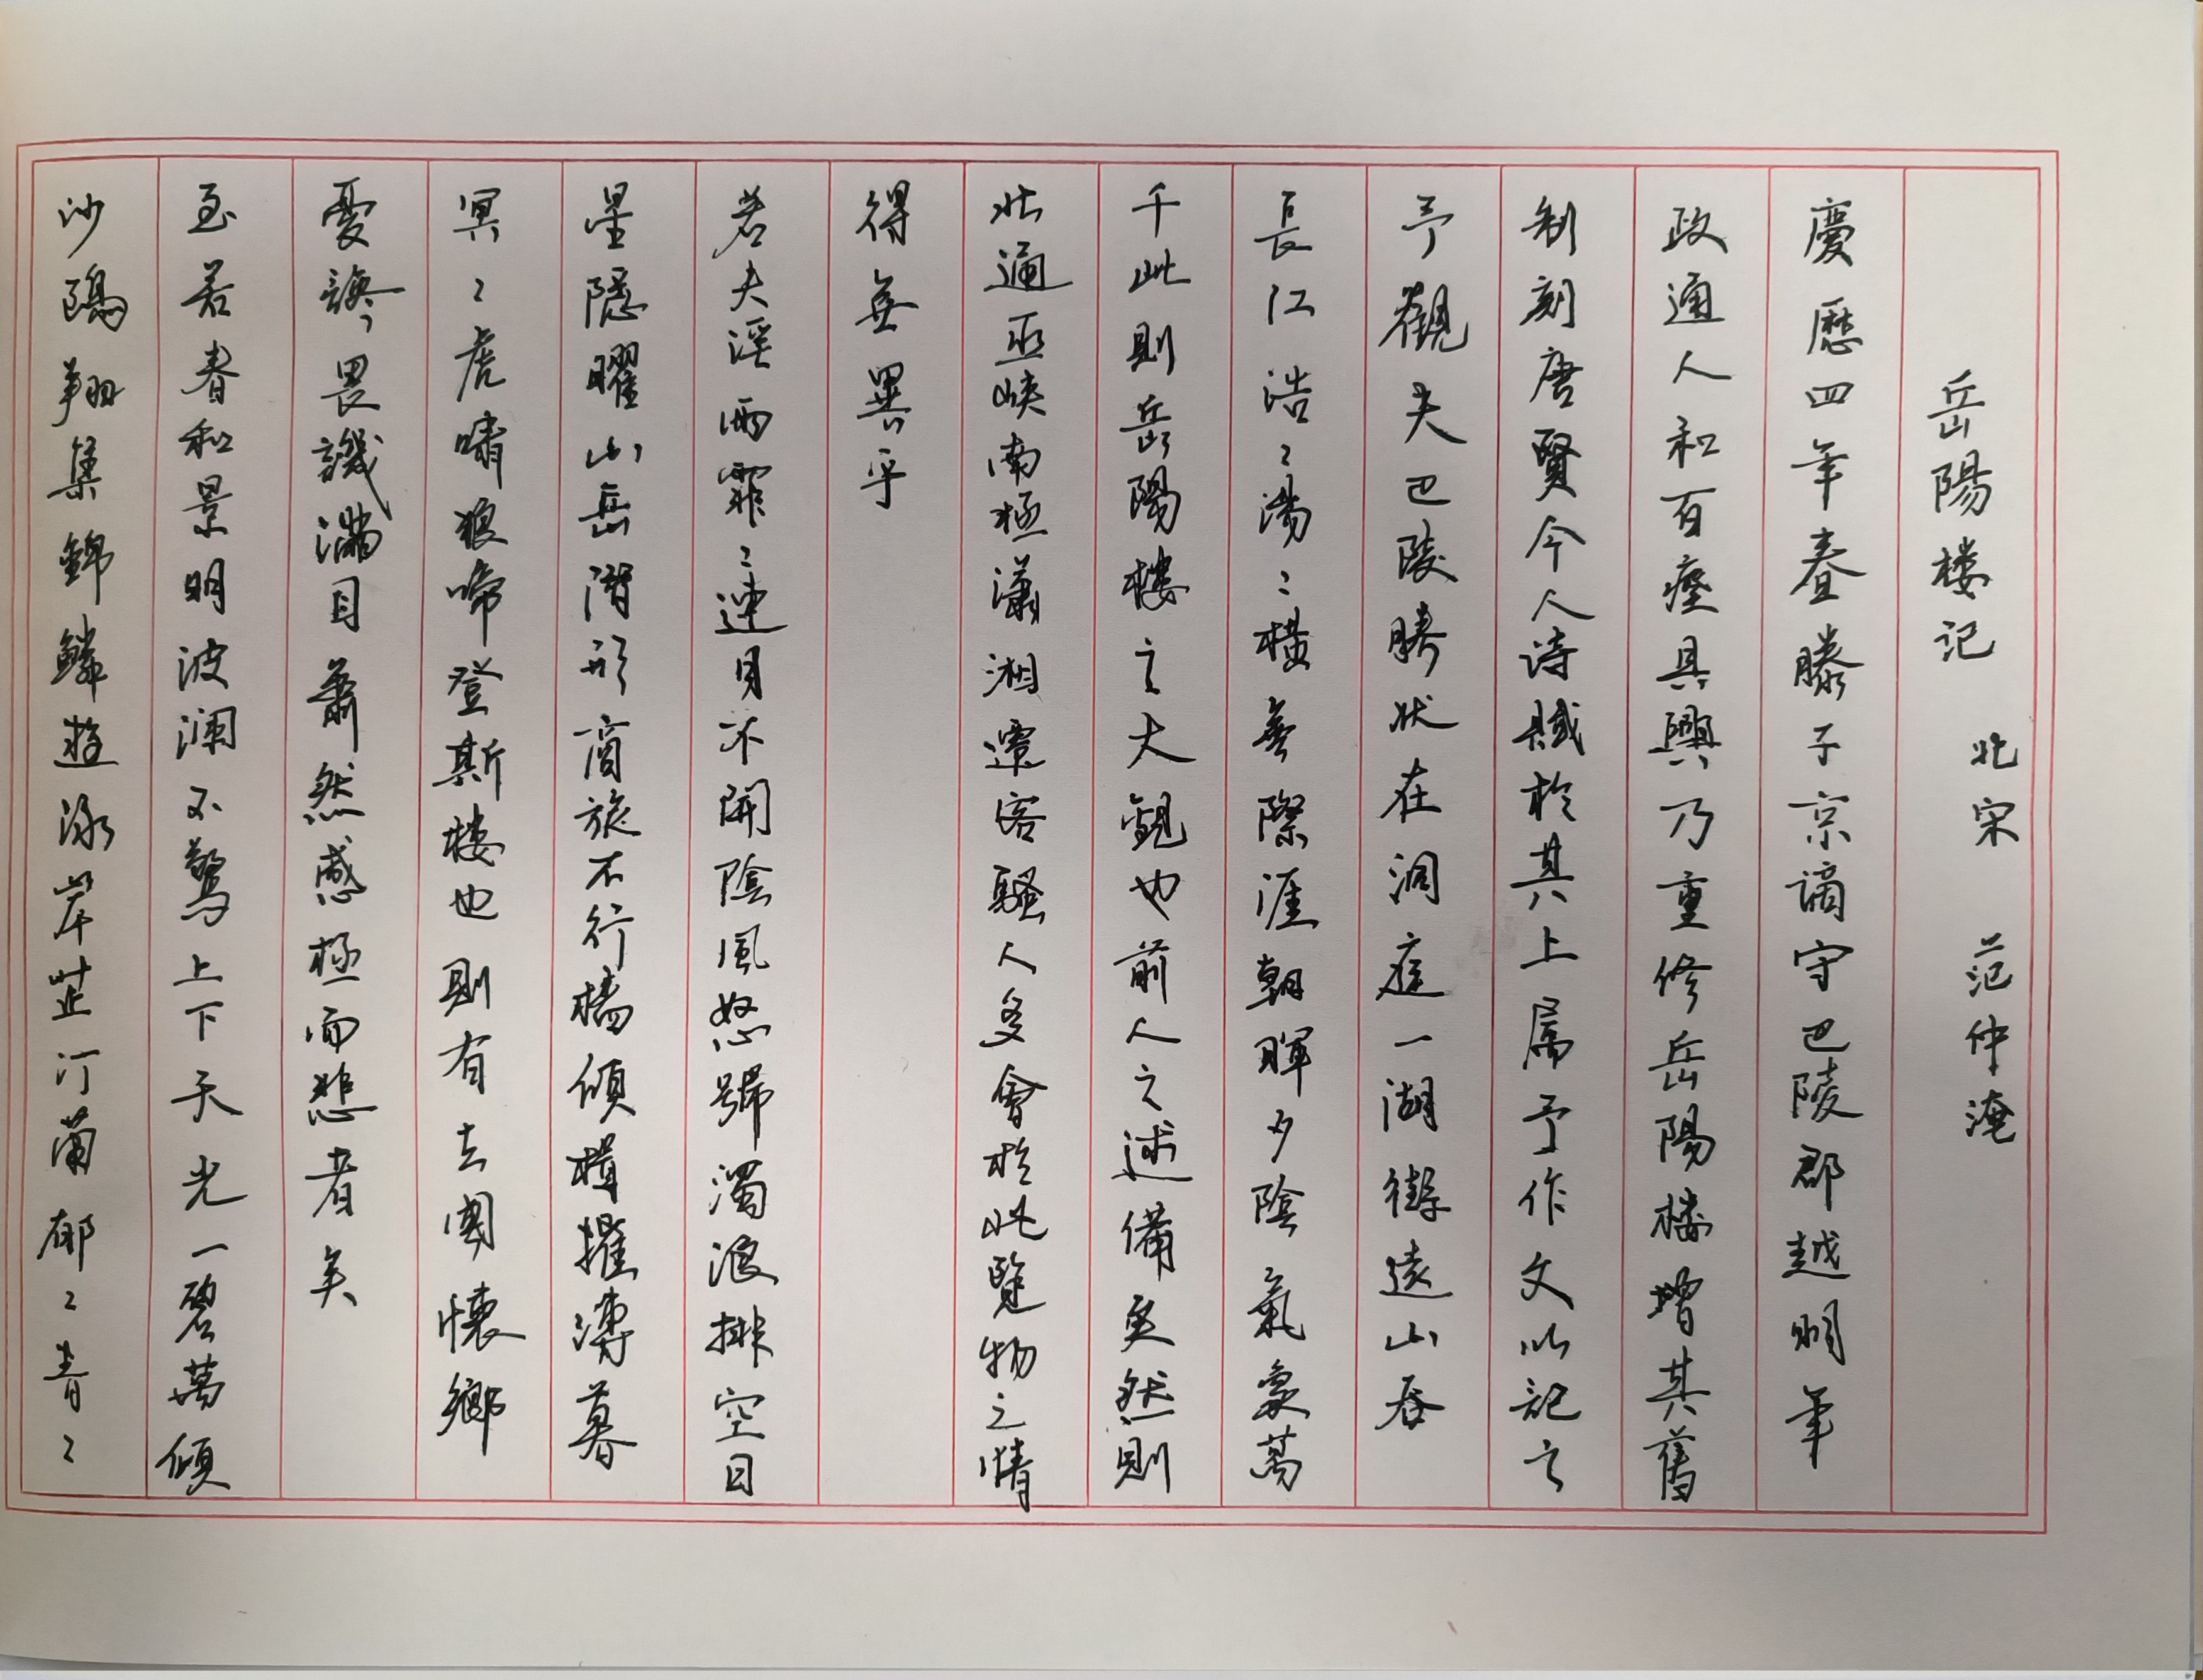 岳陽楼记 北宋 范仲淹
慶歷四年春滕子京謫守巴陵郡越明年
政通人和百廢具興乃重修岳陽楼增其舊
制刻唐賢今人詩賦於其上属予作文以記之
予觀夫巴陵勝状在洞庭一湖銜遠山吞
長江浩〻湯〻橫無際涯朝暉夕陰氣象萬
千此則岳陽楼之大觀也前人之述備矣然則
北通巫峽南極瀟湘遷客騷人多會於此覽物之情
得無異乎
若夫淫雨霏〻連月不開陰風怒號濁浪排空日
星隱曜山岳潛形商旅不行檣傾楫摧薄暮
冥〻虎嘯猿啼登斯楼也則有去國懷鄉
憂讒畏譏滿目蕭然感極而悲者矣
至若春和景明波澜不驚上下天光一碧萬頃
沙鷗翔集錦鱗遊泳岸芷汀蘭郁〻青〻